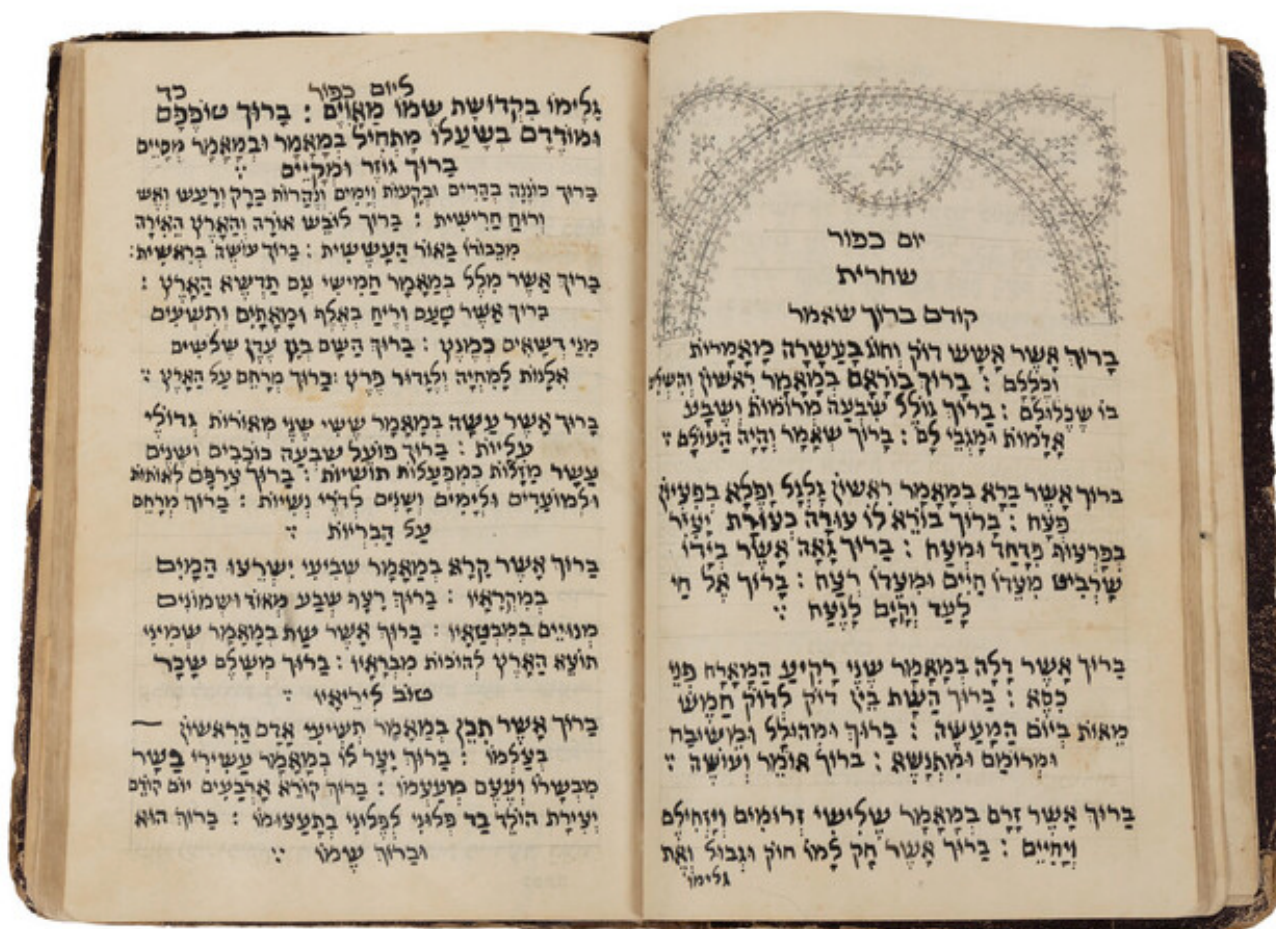 יום כפור
שחרית
קודם ברוך שאמר
בָּרוּךְ אֲשֶׁר אִשֵּׁשׁ דּוֹק וְחוּג בַּעֲשָׂרָה מַאֲמָרוֹת
וּכְלָלָם : בָּרוּךְ בּוֹרְאָם בְּמַאֲמָר רִאשׁוֹן וְהִשְׁלִים
בּוֹ שִׁכְלוּלָם : בָּרוּךְ גּוֹלֵל שִׁבְעָה מְרוֹמוֹת וְשֶׁבַע
אֲדָמוֹת וּמַגְבִּי לָם : בָּרוּךְ שֶׁאָמַר וְהָיָה הָעוֹלָם :
ברוך אֲשֶׁר בָּרָא בְּמַאֲמָר רִאשׁוֹן גַּלְגַּל וָפֶלֶא בְּפִעְיוֹן
פֶּצַח : בָּרוּךְ בּוֹרֵא לוֹ עֶזְרָה כְּעֶזְרַת
בְּפַרְעוֹת פַּחַד וּמֶצַח : בָּרוּךְ גָּאָה אֲשֶׁר בְּיָדוֹ
שַׁרְבִיט מִצִּדּוֹ חַיִּים וּמִצִּדּוֹ רֶצַח : בָּרוּךְ אֵל חַי
לָעַד וְקַיָּם לָנֶצַח :
בָּרוּךְ אֲשֶׁר דָּלָה בְּמַאֲמָר שֵׁנִי רָקִיעַ הַמְאָרֵחַ פְּנֵי
כִסֵּא : בָּרוּךְ הַשָּׁת בֵּין דּוֹק לְדוֹק חֲמֵשׁ
מֵאוֹת בְּיוֹם הַמַּעֲשֶׂה : בָּרוּךְ וּמְהוּלָל וּמְשׁוּבָּח
וּמְרוֹמָם וּמִתְנַשֵּׂא : ברוך אוֹמֵר וְעוֹשֶׂה :
בָּרוּךְ אֲשֶׁר זָרַם בְּמַאֲמָר שְׁלִישִׁי זְרוּמִים וְיָזְחִילֵם
וְיָחֲיִים : בָּרוּךְ אֲשֶׁר חָק לָמוֹ חוֹק וּגְבוּל וְאֶת
גלימו
ליום כפור
כד
גְּלִימוֹ בִּקְדוּשַׁת שְׁמוֹ מְאַוִּים : בָּרוּךְ טוֹפְפָם
וּמוֹדְדָם בְּשָׁעֳלוֹ מַתְחִיל בְּמַאֲמָר וּבְמַאֲמָר מְסַיֵּים
בָּרוּךְ גוֹזֵר וּמְקַיֵּים :
בָּרוּךְ כּוֹנְנָה בְּהָרִים וּבְקָעוֹת וְיַמִּים וּנְהָרוֹת בָּרָק וְרַעַשׁ וְאֵשׁ
וְרוּחַ חֲרִישִׁית : בָּרוּךְ לוֹבֵשׁ אוֹרָה וְהָאָרֶץ הֵאִירָה
מִכְּבוֹדוֹ כְּאוֹר הָעֲשָׁשִׁית : בָּרוּךְ עוֹשֶׂה בְרֵאשִׁית :
בָּרוּךְ אֲשֶׁר מִלֵּל בְּמַאֲמָר חֲמִישִׁי עִם תַּדְשֵׁא הָאָרֶץ :
בָּרוּךְ אֲשֶׁר טָעַם וְרֵיחַ בְּאֶלֶף וּמָאתַיִם וְתִשְׁעִים
מִינֵי דְשָׁאִים כְּמֶנֶץ : בָּרוּךְ הַשָּׂם בְּגַן עֵדֶן שְׁלֹשִׁים
אִלָנוֹת לְמִחְיָה וְלִגְדּוֹר פֶּרֶץ : בָּרוּךְ מְרַחֵם עַל הָאָרֶץ :
בָּרוּךְ אֲשֶׁר עָשָׂה בְּמַאֲמָר שִׁשִּׁי שְׁנֵי מְאוֹרוֹת גְּדוֹלֵי
עֲלִיּוֹת : בָּרוּךְ פּוֹעֵל שִׁבְעָה כּוֹכָבִים וּשְׁנֵים
עָשָׂר מַזָּלוֹת כְּמִפְעֲלוֹת תּוּשִׁיּוֹת : בָּרוּךְ צֵרְפָם לְאוֹתוֹת
וּלְמוֹעֲדִים וּלְיָמִים וְשָׁנִים לְדָרֵי נְשִׁיּוֹת : בָּרוּךְ מְרַחֵם
עַל הַבְּרִיּוֹת :
בָּרוּךְ אֲשֶׁר קָרָא בְּמַאֲמָר שְׁבִיעִי יִשְׁרְצוּ הַמַּיִם
בְּמִקְרָאָיו : בָּרוּךְ רָצַף שְׁבַע מֵאוֹת וּשְׁמוֹנִים
מְנוּיִים בְּמִבְטָאָיו : בָּרוּךְ אֲשֶׁר שָׁת בְּמַאֲמָר שְׁמִינִי
תּוֹצֵא הָאָרֶץ לְהוֹכוֹת מִבְרָאָיו : בָּרוּךְ מְשַׁלֵּם שָׂכָר
טוֹב לִירֵאָיו :
בָּרוּךְ אֲשֶׁר תִּכֵּן בְּמַאֲמָר תְּשִׁיעִי אָדָם הָרִאשׁוֹן
בְּצַלְמוֹ : בָּרוּךְ יָצַר לוֹ בְּמַאֲמָר עֲשִׂירִי בָּשָׂר
מִבְּשָׂרוֹ וְעֶצֶם מֵעַצְמוֹ : בָּרוּךְ קוֹרֵא אַרְבָּעִים יוֹם קוֹדֶם
יְצִירַת הַוָּלָד בַּד פְּלוֹנִי לִפְלוֹנִי בְּתַעֲצוּמוֹ : בָּרוּךְ הוּא
וּבָרוּךְ שְׁמוֹ :